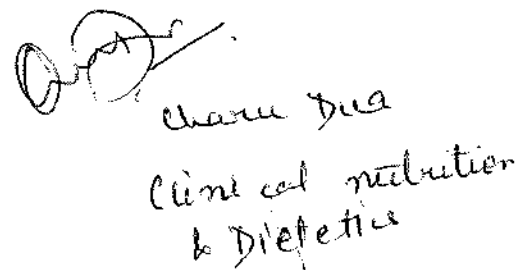 Charu Dua
Clinical nutrition
& Dietetics